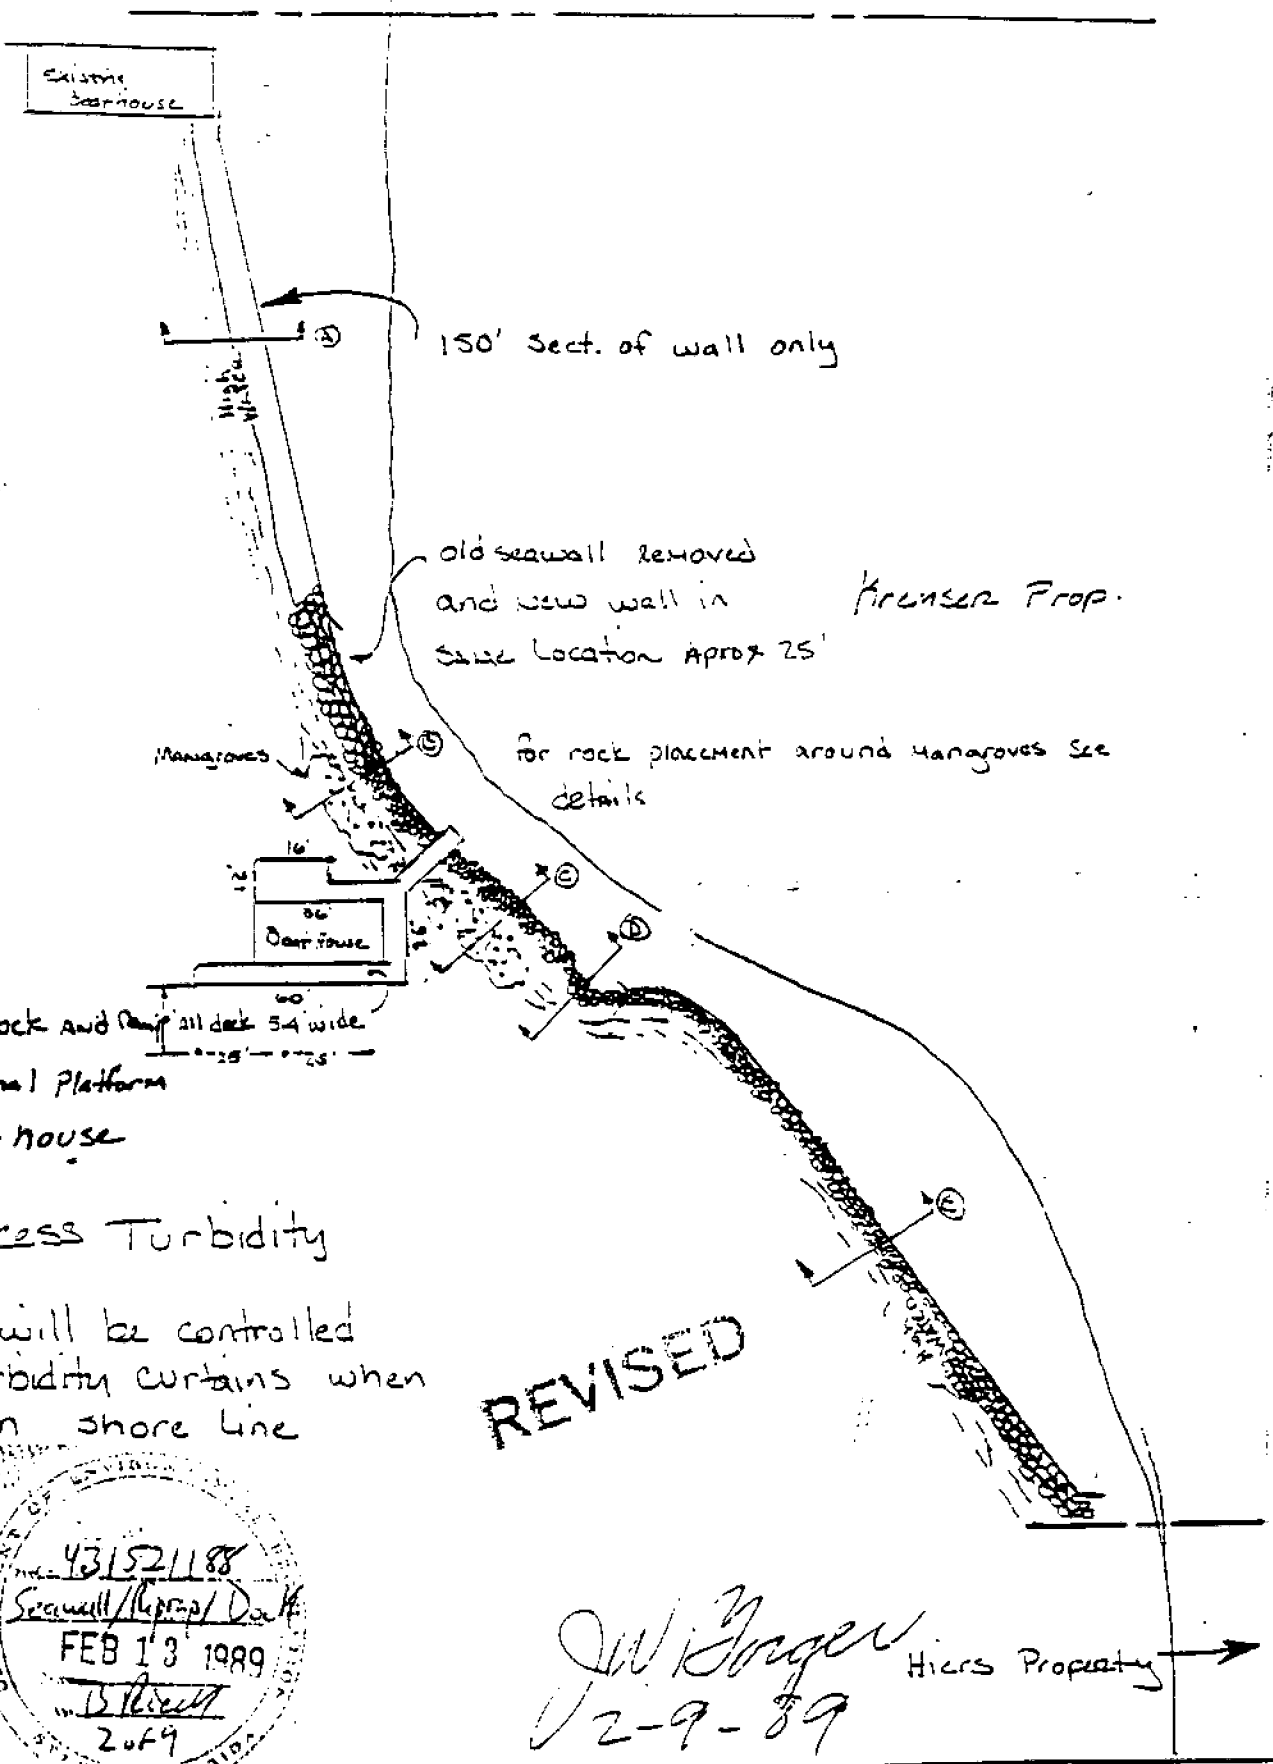 Existing
Boathouse
A
150' Sect. of wall only
High
Water
old seawall Removed
and new wall in
Same Location Aprox 25'
Krenser Prop.
Mangroves
B
for rock placement around Mangroves see
details
16'
12'
36'
Boat House
C
D
60'
ock AND Ramp all deck 5.4' wide
25' 25'
nal Platform
house
E
cess Turbidity
will be controlled
rbidity curtains when
n shore line
High
Water
REVISED
431521188
Seawall/Riprap/Dock
FEB 13 1989
2 of 9
2-9-89
Hiers Property